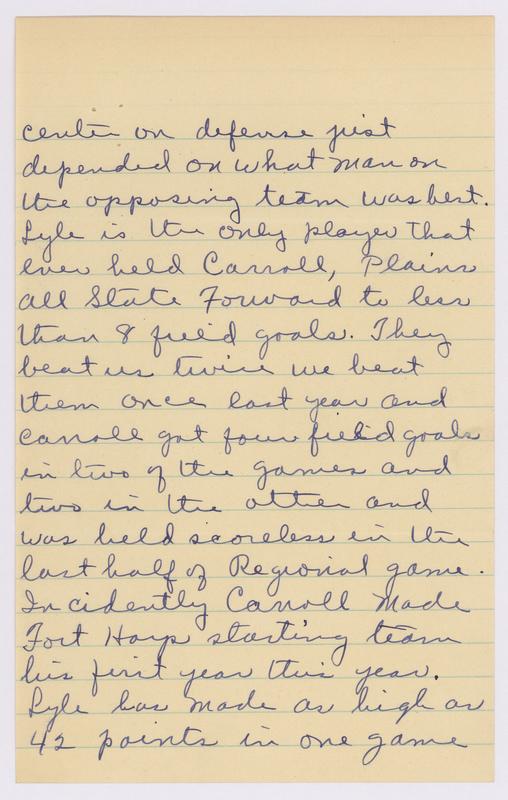 center on defense just
depended on what man on
the opposing team was best.
Lyle is the only player that
ever held Carroll, Plains
all State Forward to less
than 8 field goals. They
beat us twice we beat
them once last year and
Carroll got four field goals
in two of the games and
two in the other and
was held scoreless in the
last half of Regional game.
Incidently Carroll made
Fort Hays starting team
his first year this year.
Lyle has made as high as
42 points in one game